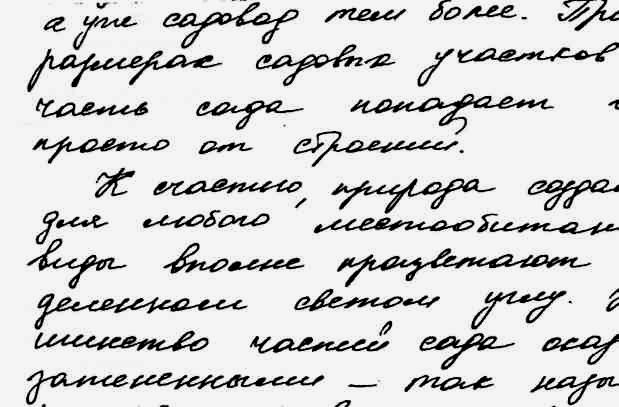 а уж садовод тем более. При
размерах садовых участков
часть сада попадает
просто от строений.
К счастью, природа созда
для любого местообитан
виды вполне процветают
деленном светом углу.
шинство частей сада оказ
затененными — так назы